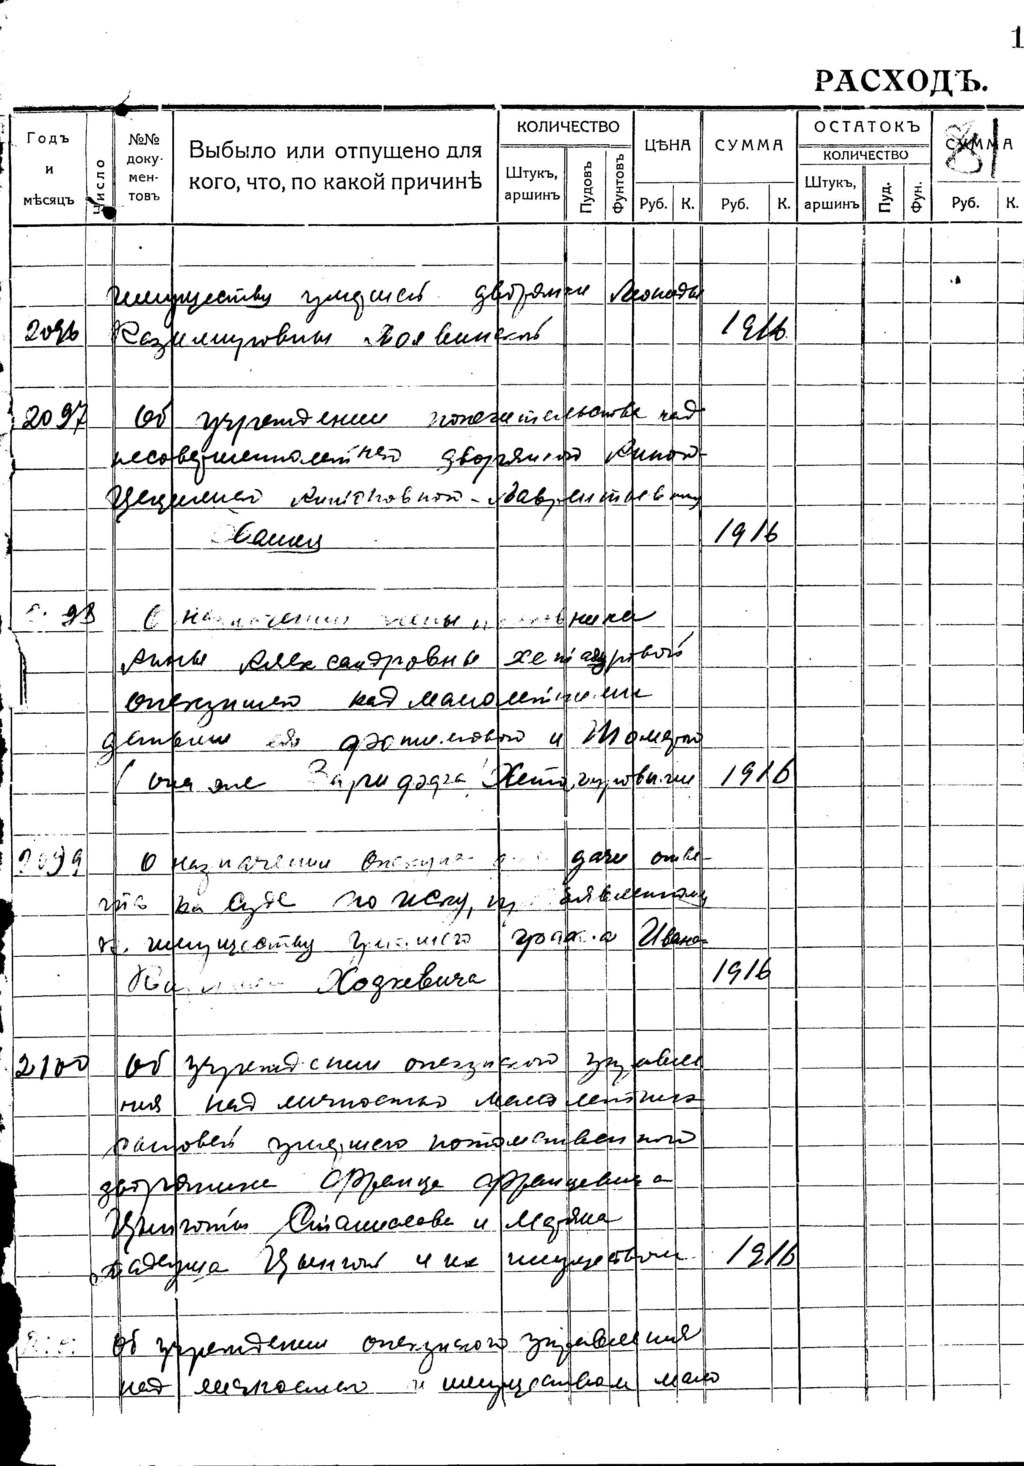 1
РАСХОДЪ.
Годъ и мѣсяцъ
Число
№№ докумен-товъ
Выбыло или отпущено для кого, что, по какой причинѣ
КОЛИЧЕСТВО
Штукъ, аршинъ
Пудовъ
Фунтовъ
ЦѢНА
Руб. К.
СУММА
Руб. К.
ОСТАТОКЪ
КОЛИЧЕСТВО
Штукъ, аршинъ
Пуд.
Фун.
СУММА
Руб. К.
81
имуществу умершей дворянки Леокадии
2096 Казимировны 1916
2097 Об учреждении попечительства над
несовершеннолетней дворянкой Анной-
Цецилией Антоновной-Лаврентьевной
1916
98 О назначении жены
Анны Александровны Хетагуровой
опекуншею над малолетними
детьми ея и Тамарой
(она же Заридада) Хетагуровыми 1916
2099 О назначении опекуна для дачи отве-
та на суде по иску, предъявленному
к имуществу умершего граф-а Ивана-
Ходкевича 1916
2100 Об учреждении опекунского управле
ния над личностью малолетних
сыновей умершего потомственного
дворянина Франца Францевича
Станислава и Марьяна
Тадеуша и их имуществом 1916
Об учреждении опекунского управления
над личностью и имуществом мало